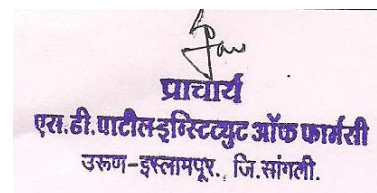 प्राचार्य
एस.डी.पाटील इन्स्टिट्युट ऑफ फार्मसी
उरुण-इस्लामपूर., जि.सांगली.